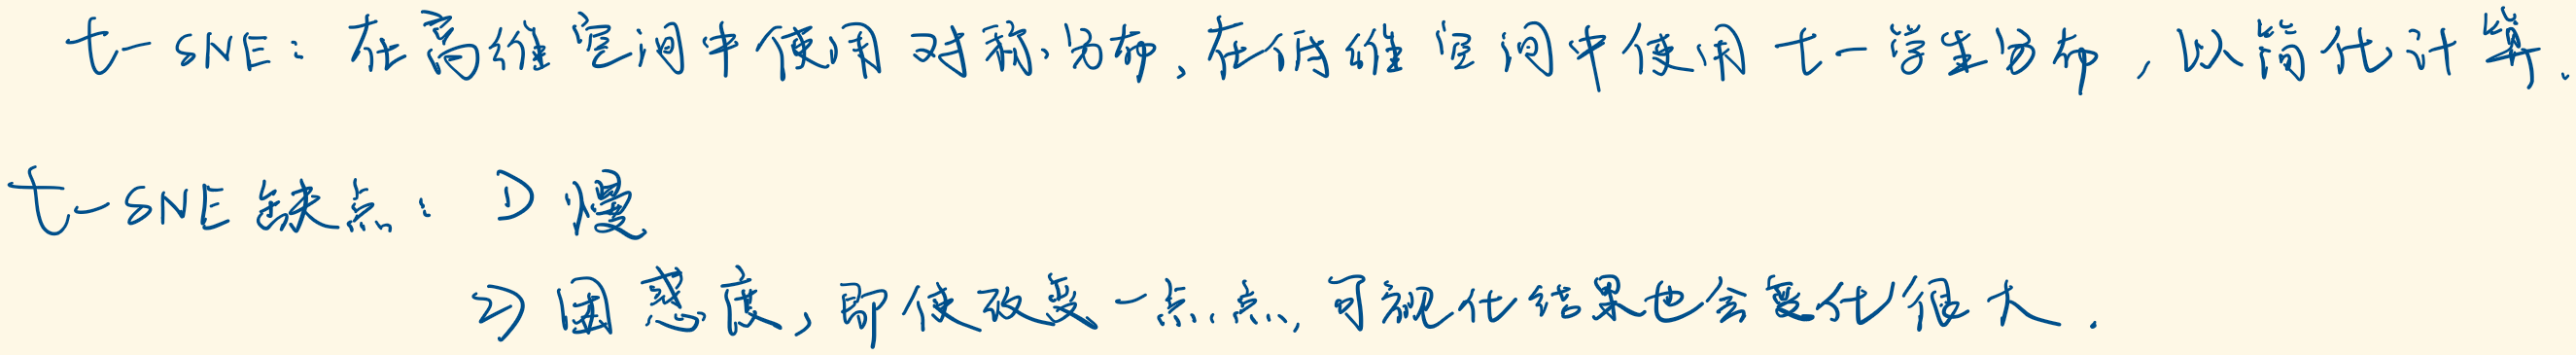 t-SNE：在高维空间中使用对称分布，在低维空间中使用t-学生分布，以简化计算.
t-SNE缺点：1) 慢
2) 困惑度，即使改变一点点，可视化结果也会变化很大.